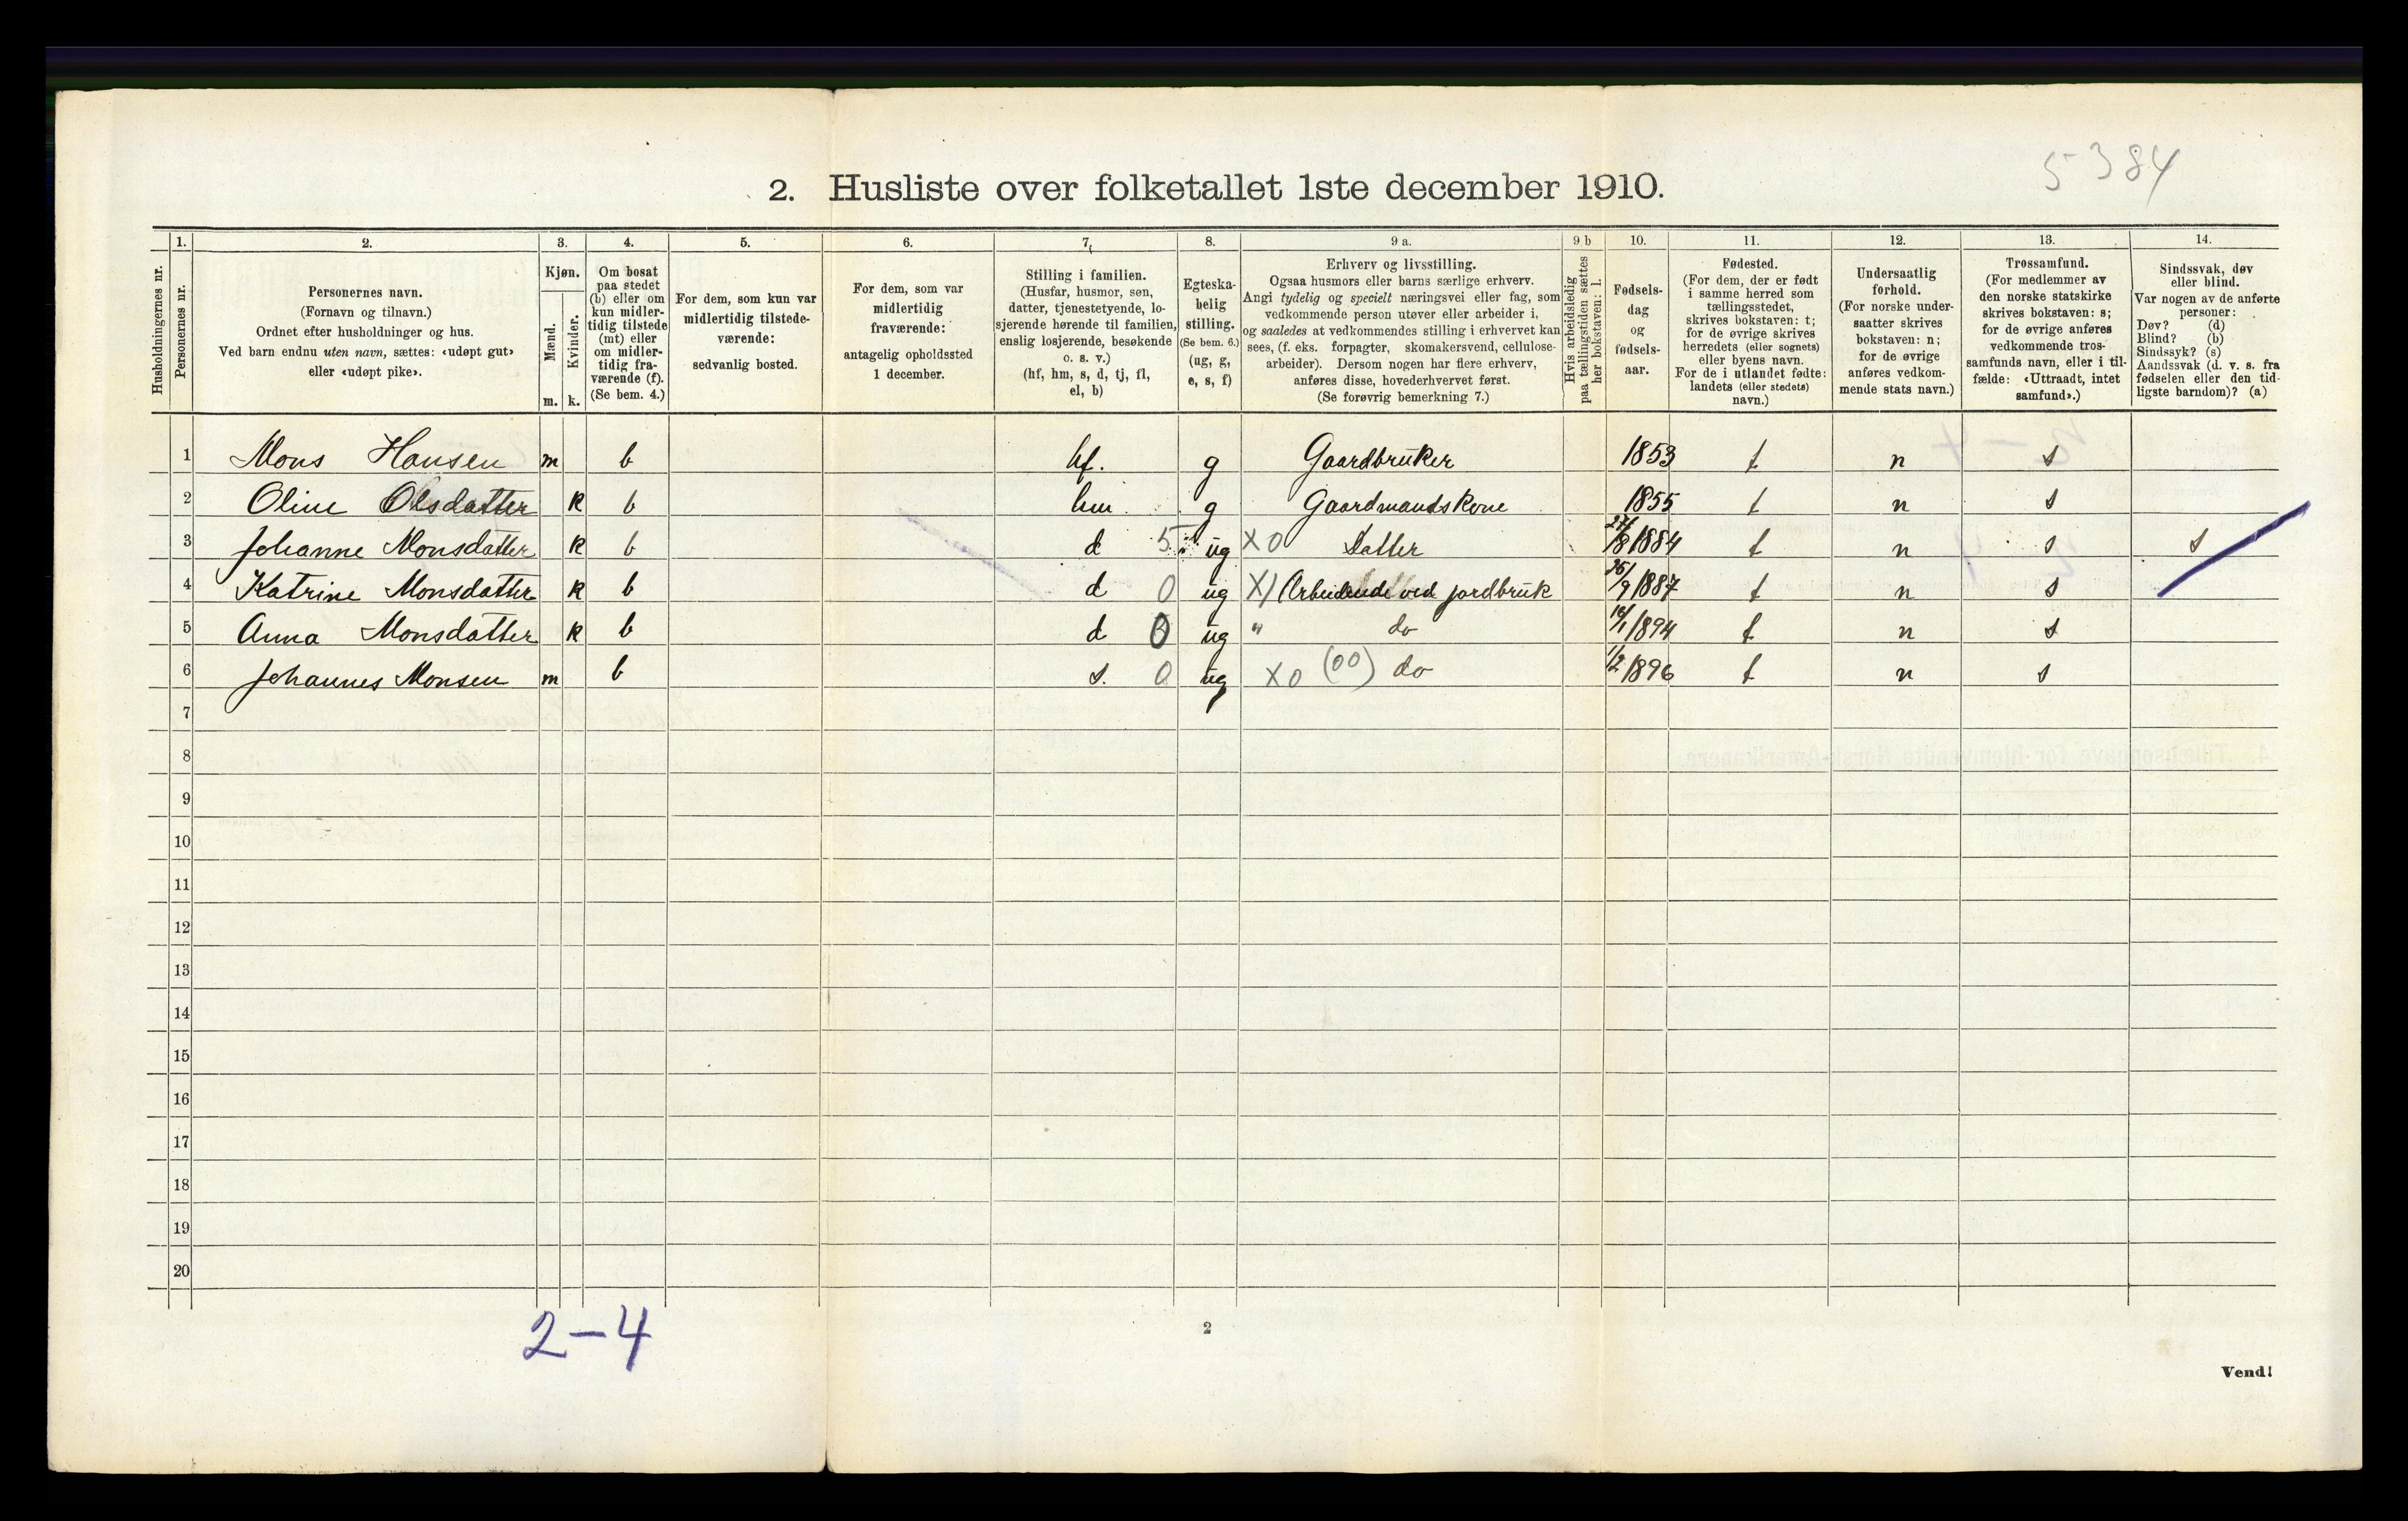 5384
2. Husliste over folketallet 1ste december 1910.
1. 2. 3. 4. 5. 6. 7. 8. 9 a. 9 b 10. 11. 12. 13. 14.
Husholdningernes nr.
Personernes nr.
Personernes navn.
(Fornavn og tilnavn.)
Ordnet efter husholdninger og hus.
Ved barn endnu uten navn, sættes: «udøpt gut»
eller «udøpt pike».
Kjøn.
Mænd.
Kvinder.
m. k.
Om bosat
paa stedet
(b) eller om
kun midler-
tidig tilstede
(mt) eller
om midler-
tidig fra-
værende (f).
(Se bem. 4.)
For dem, som kun var
midlertidig tilstede-
værende:
sedvanlig bosted.
For dem, som var
midlertidig
fraværende:
antagelig opholdssted
1 december.
Stilling i familien.
(Husfar, husmor, søn,
datter, tjenestetyende, lo-
sjerende hørende til familien,
enslig losjerende, besøkende
o. s. v.)
(hf, hm, s, d, tj, fl,
el, b)
Egteska-
belig
stilling.
(Se bem. 6.)
(ug, g,
e, s, f)
Erhverv og livsstilling.
Ogsaa husmors eller barns særlige erhverv.
Angi tydelig og specielt næringsvei eller fag, som
vedkommende person utøver eller arbeider i,
og saaledes at vedkommendes stilling i erhvervet kan
sees, (f. eks. forpagter, skomakersvend, cellulose-
arbeider). Dersom nogen har flere erhverv,
anføres disse, hovederhvervet først.
(Se forøvrig bemerkning 7.)
Hvis arbeidsledig
paa tællingstiden sættes
her bokstaven: l.
Fødsels-
dag
og
fødsels-
aar.
Fødested.
(For dem, der er født
i samme herred som
tællingsstedet,
skrives bokstaven: t;
for de øvrige skrives
herredets (eller sognets)
eller byens navn.
For de i utlandet fødte:
landets (eller stedets)
navn.)
Undersaatlig
forhold.
(For norske under-
saatter skrives
bokstaven: n;
for de øvrige
anføres vedkom-
mende stats navn.)
Trossamfund.
(For medlemmer av
den norske statskirke
skrives bokstaven: s;
for de øvrige anføres
vedkommende tros-
samfunds navn, eller i til-
fælde: «Uttraadt, intet
samfund».)
Sindssvak, døv
eller blind.
Var nogen av de anførte
personer:
Døv? (d)
Blind? (b)
Sindssyk? (s)
Aandssvak (d. v. s. fra
fødselen eller den tid-
ligste barndom)? (a)
1 Mons Hansen m b hf. g Gaardbruker 1853 t n s
2 Oline Olsdatter k b hm g Gaardmandskone 1855 t n s
3 Johanne Monsdatter k b d 5 ug X0 Datter 27/8 1884 t n s s
4 Katrine Monsdatter k b d 0 ug X) Arbeidende ved jordbruk 25/9 1887 t n s
5 Anna Monsdatter k b d 0 ug " do 1894 t n s
6 Johannes Monsen m b s. 0 ug X0 (00) do 1/2 1896 t n s
7
8
9
10
11
12
13
14
15
16
17
18
19
20
2-4
2
Vend!